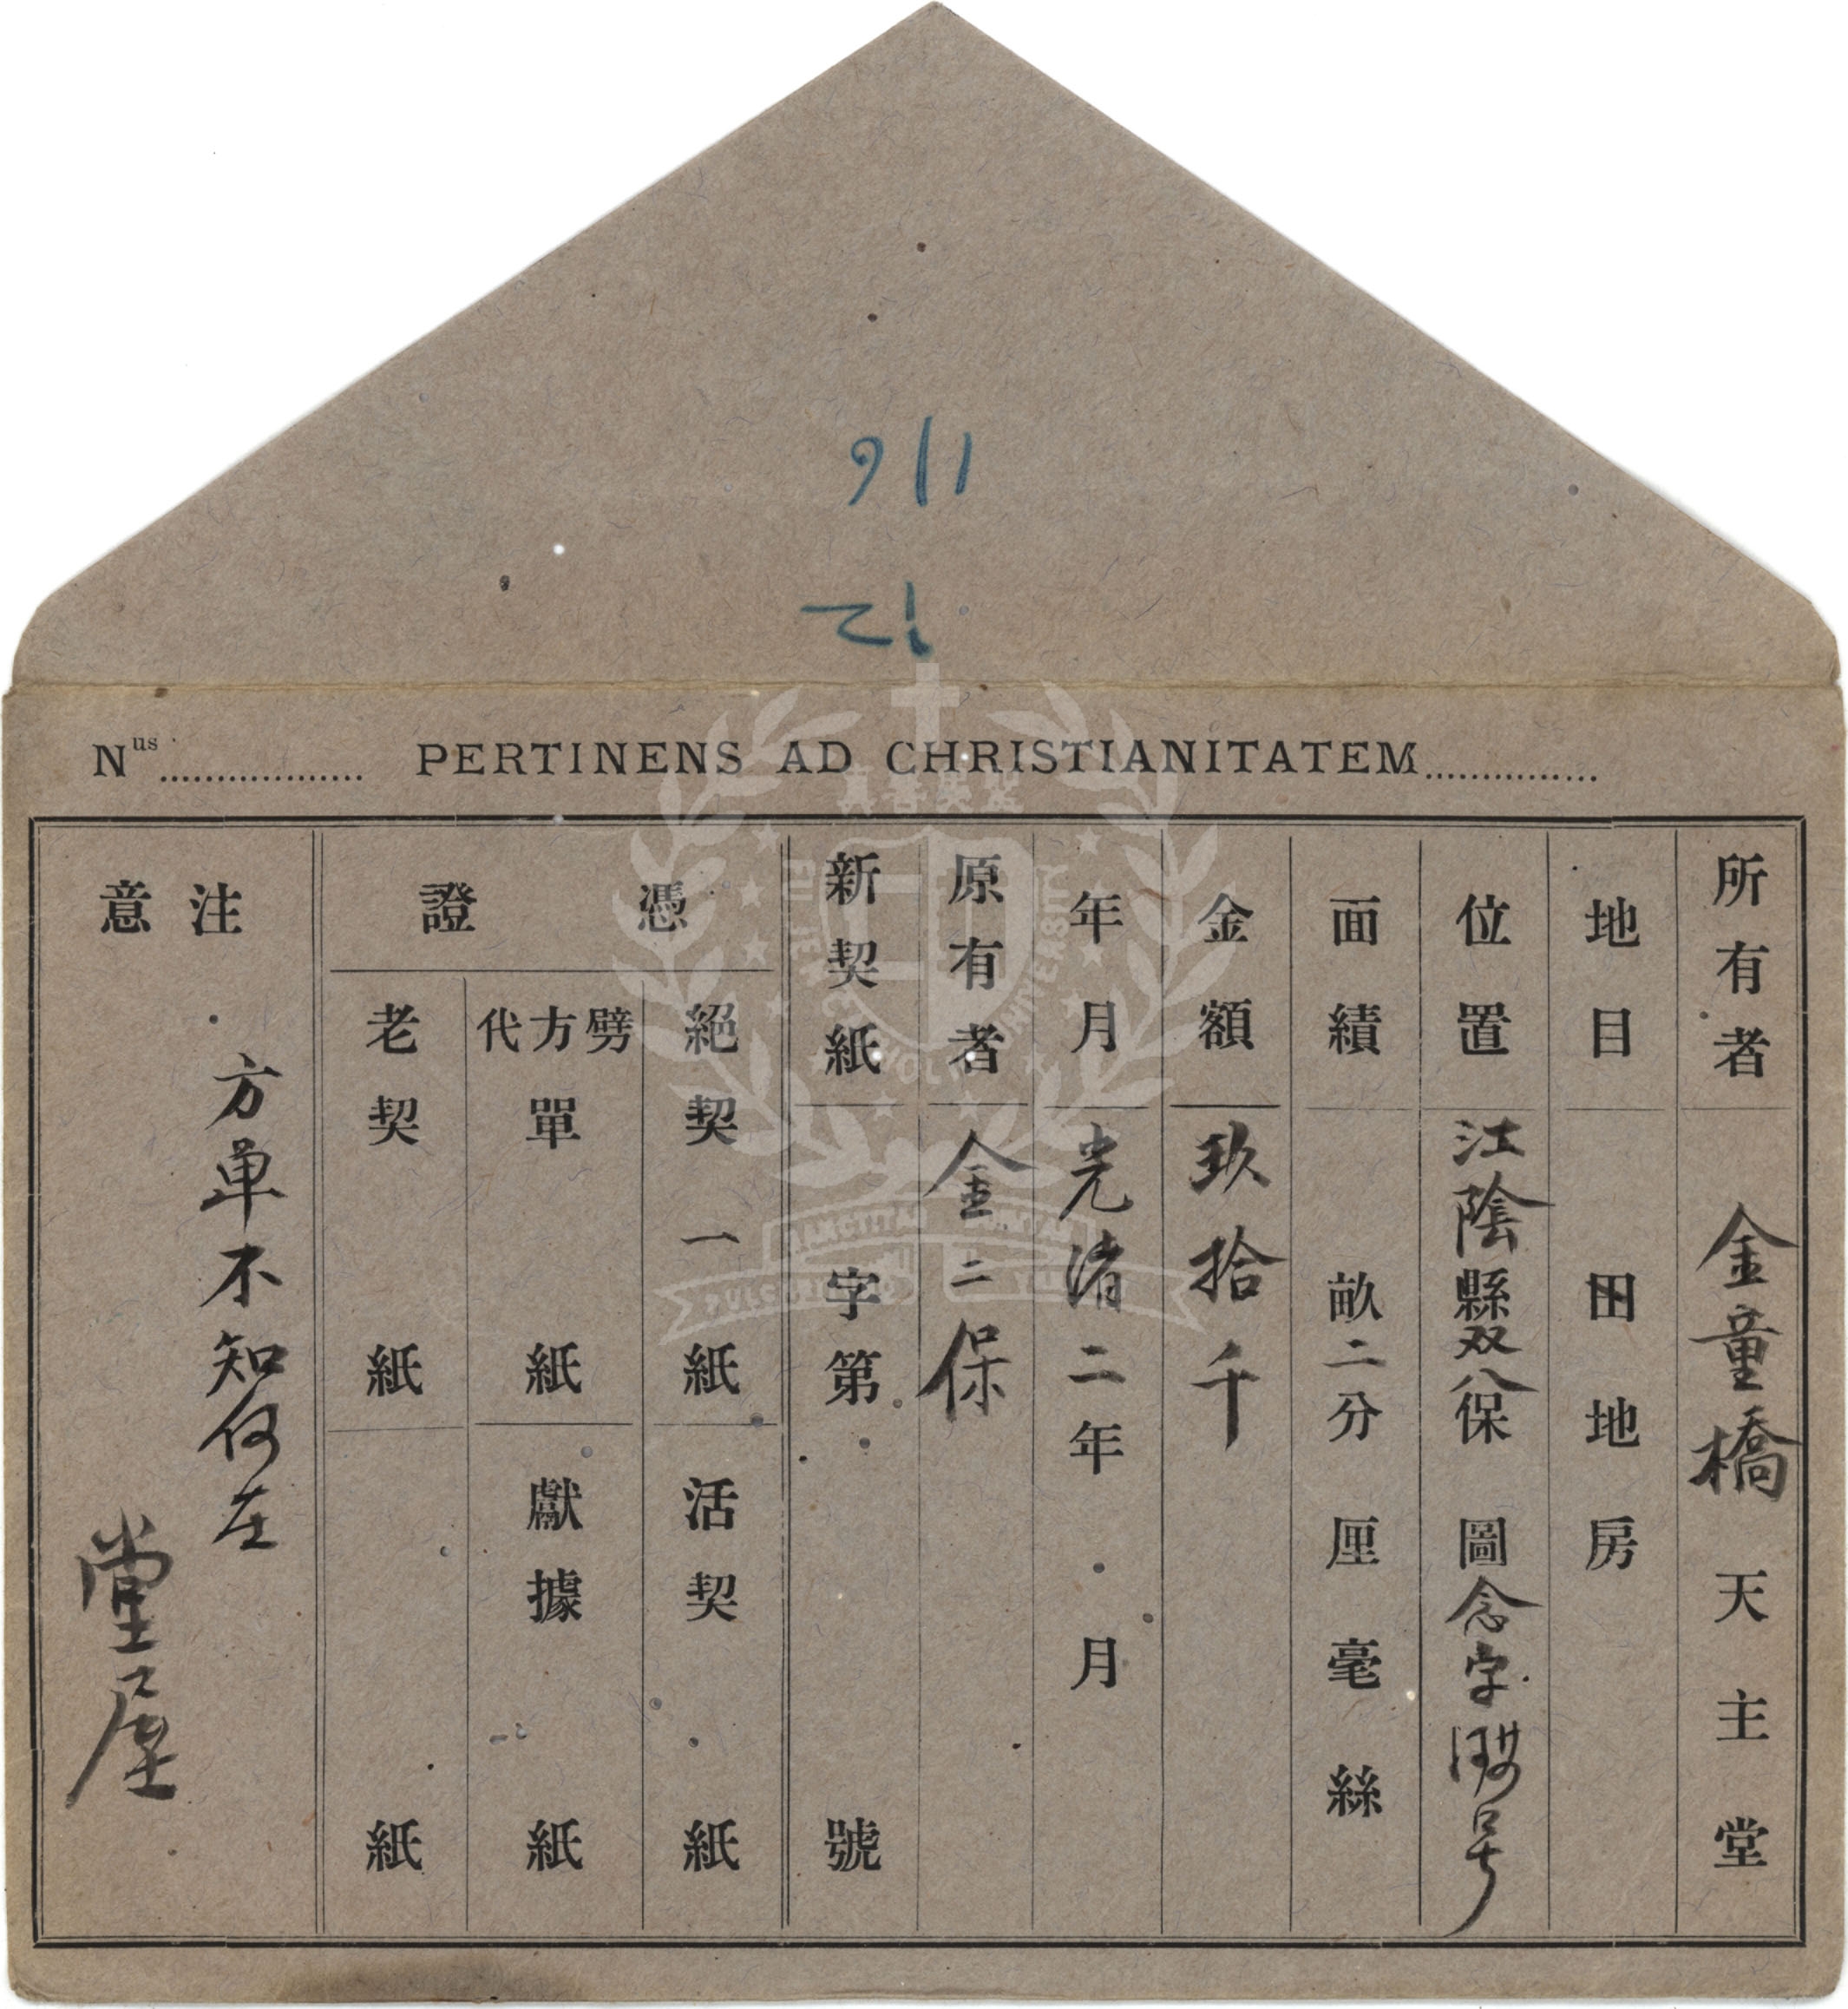 911
12
Nus PERTINENS AD CHRISTIANITATEM
所有者 金童橋天主堂
地目 田地房
位置 江陰縣双八保圖念字 号
面績 畝二分厘毫絲
金額 玖拾千
年月 光渚二年月
原有者 金二保
新契紙 字第號
憑證
絕契一紙 活契紙
劈方代單紙 獻據紙
老契紙 紙
注意
方单不知何在
堂屋